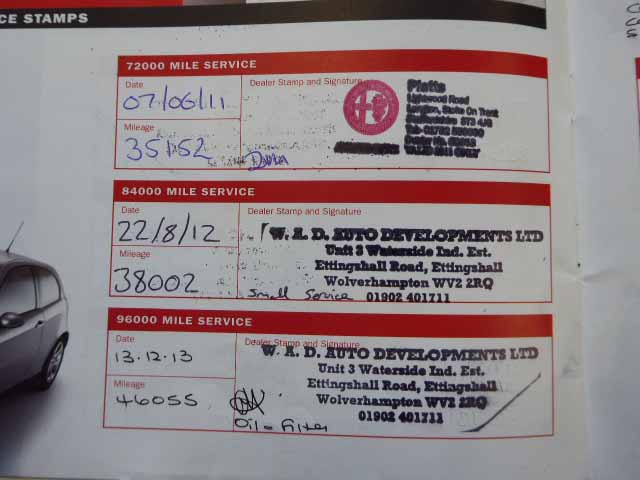 CE STAMPS
72000 MILE SERVICE
Date
07/06/11
Dealer Stamp and Signature
Platts
Road
Longton, Stoke On Trent
ST3 4JG
Mileage
35152
84000 MILE SERVICE
Date
22/8/12
Dealer Stamp and Signature
W. A. D. AUTO DEVELOPMENTS LTD
Unit 3 Waterside Ind. Est.
Ettingshall Road, Ettingshall
Wolverhampton WV2 2RQ
01902 401711
Mileage
38002
Small Service
96000 MILE SERVICE
Date
13.12.13
Dealer Stamp and Signature
W. A. D. AUTO DEVELOPMENTS LTD
Unit 3 Waterside Ind. Est.
Ettingshall Road, Ettingshall
Wolverhampton WV2 2RQ
01902 401711
Mileage
46055
Oil - Filter